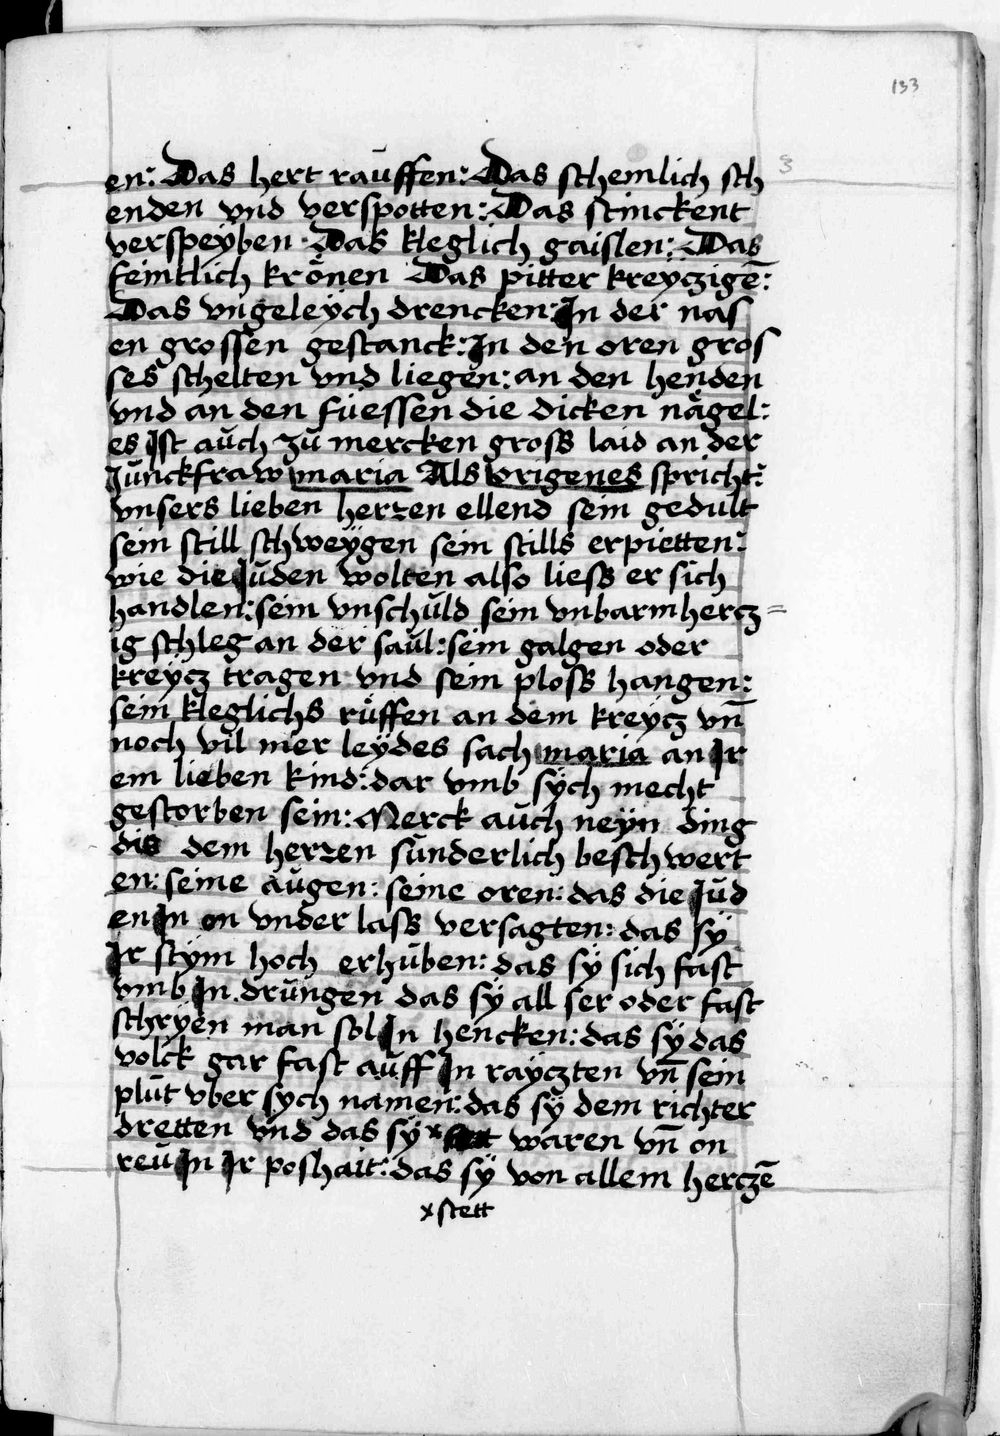 133
3
en: Das hert rauffen: Das schemlich sch
enden vnd verspotten: Das stinckent
verspeyben: Das kleglich gaislen: Das
feintlich krönen Das pitter kreyczigē:
Das vngeleych drencken: In der nas
en grossen gestanck: In den oren gros
ses schelten vnd liegen: an den henden
vnd an den füessen die dicken nägel:
es Ist auch zu mercken gross laid an der
Junckfraw maria Als origenes spricht:
vnsers lieben herren ellend sein gedult
sein still schweÿgen sein stills erpietten:
wie die Juden wolten also liess er sich
handlen: sein vnschuld sein vnbarmhercz=
ig schleg an der saul: sein galgen oder
kreÿcz tragen vnd sein ploss hangen:
sein kleglichs rüffen an dem kreÿcz vn̄
noch vil mer leÿdes sach maria an Ir
em lieben kind: dar vmb sÿch mecht
gestorben sein: Merck auch neÿn ding
die dem herren sunderlich beschwert
en: seine augen: seine oren: das die Jud
en In on vnder lass versagten: das sÿ
Ir stÿm hoch erhuben: das sÿ sich fast
vmb In drungen das sÿ all ser oder fast
schrÿen man sol In hencken: das sÿ das
volck gar fast auff In rayczten vn̄ sein
plut vber sych namen: das sÿ dem richter
dretten vnd das sÿ x waren vn̄ on
reu In Ir poshait: das sÿ von allem herczē
x stett